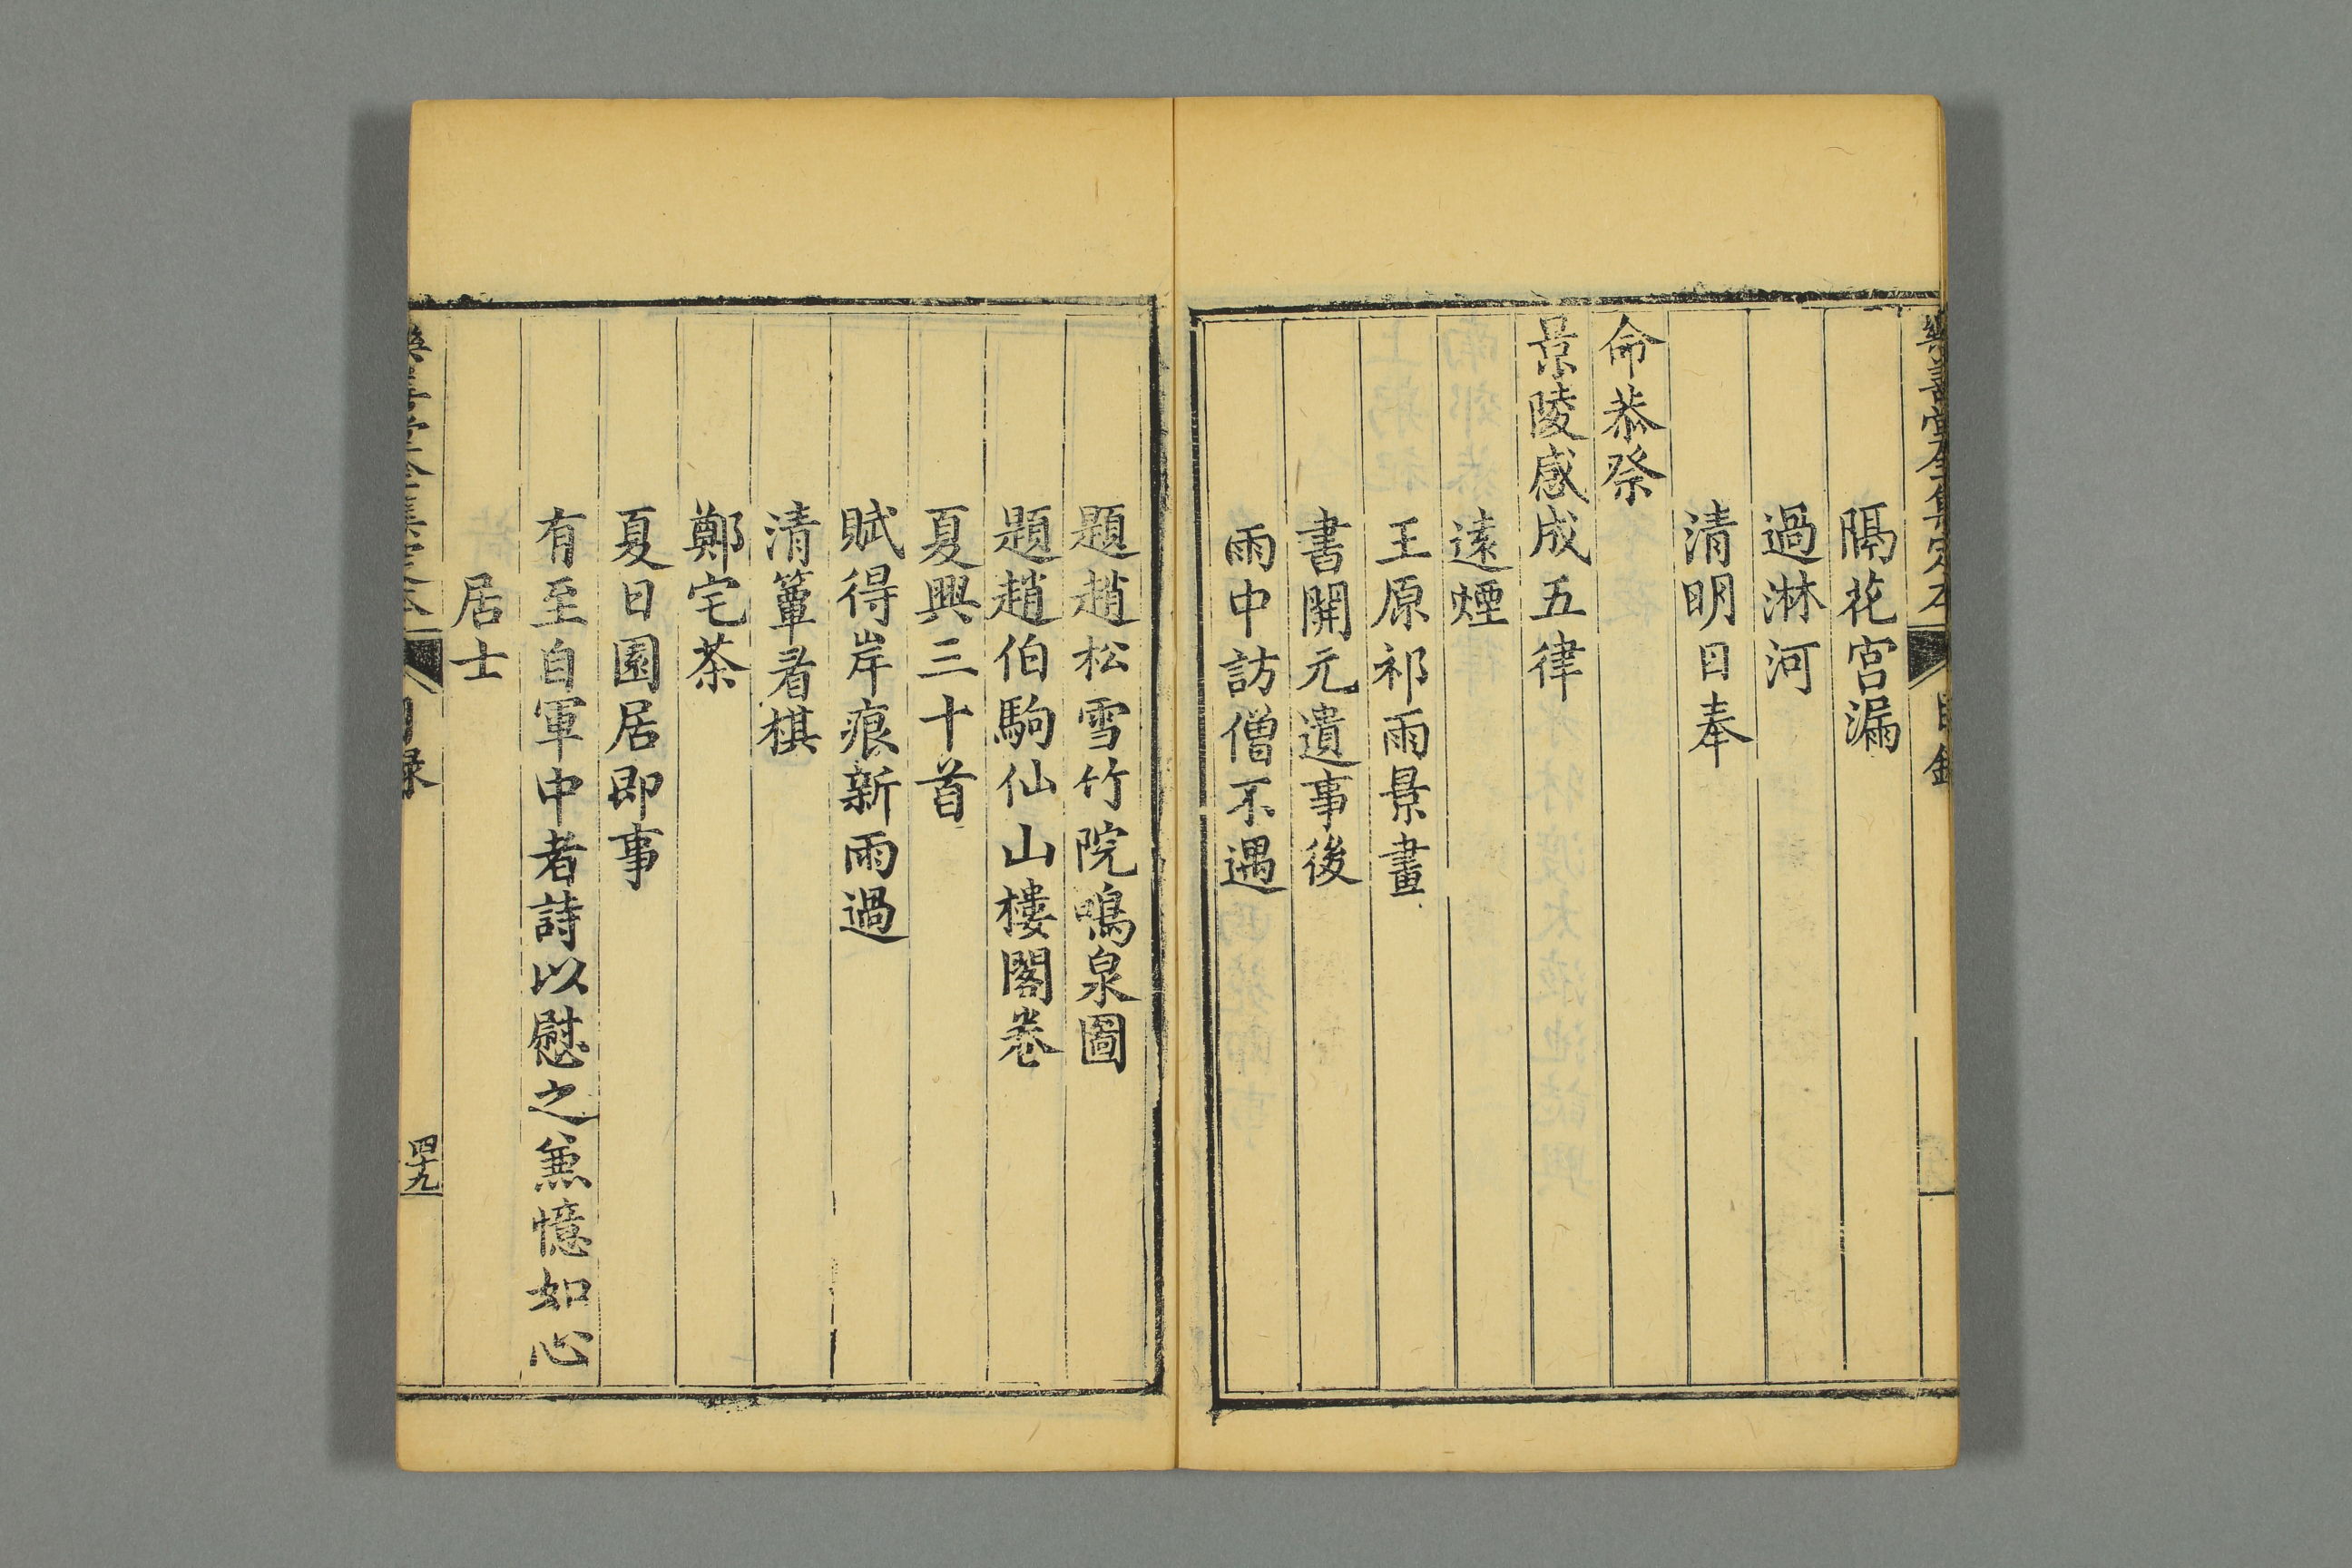 樂善堂全集定本
目錄
隔花宮漏
過淋河
清明日奉
命恭祭
景陵感成五律
遠煙
王原祁雨景畫
書開元遺事後
雨中訪僧不遇
題趙松雪竹院鳴泉圖
題趙伯駒仙山樓閣卷
夏興三十首
賦得岸痕新雨過
清簟看棋
鄭宅茶
夏日園居即事
有至自軍中者詩以慰之兼憶如心
居士
樂善堂全集定本
目録
四十九